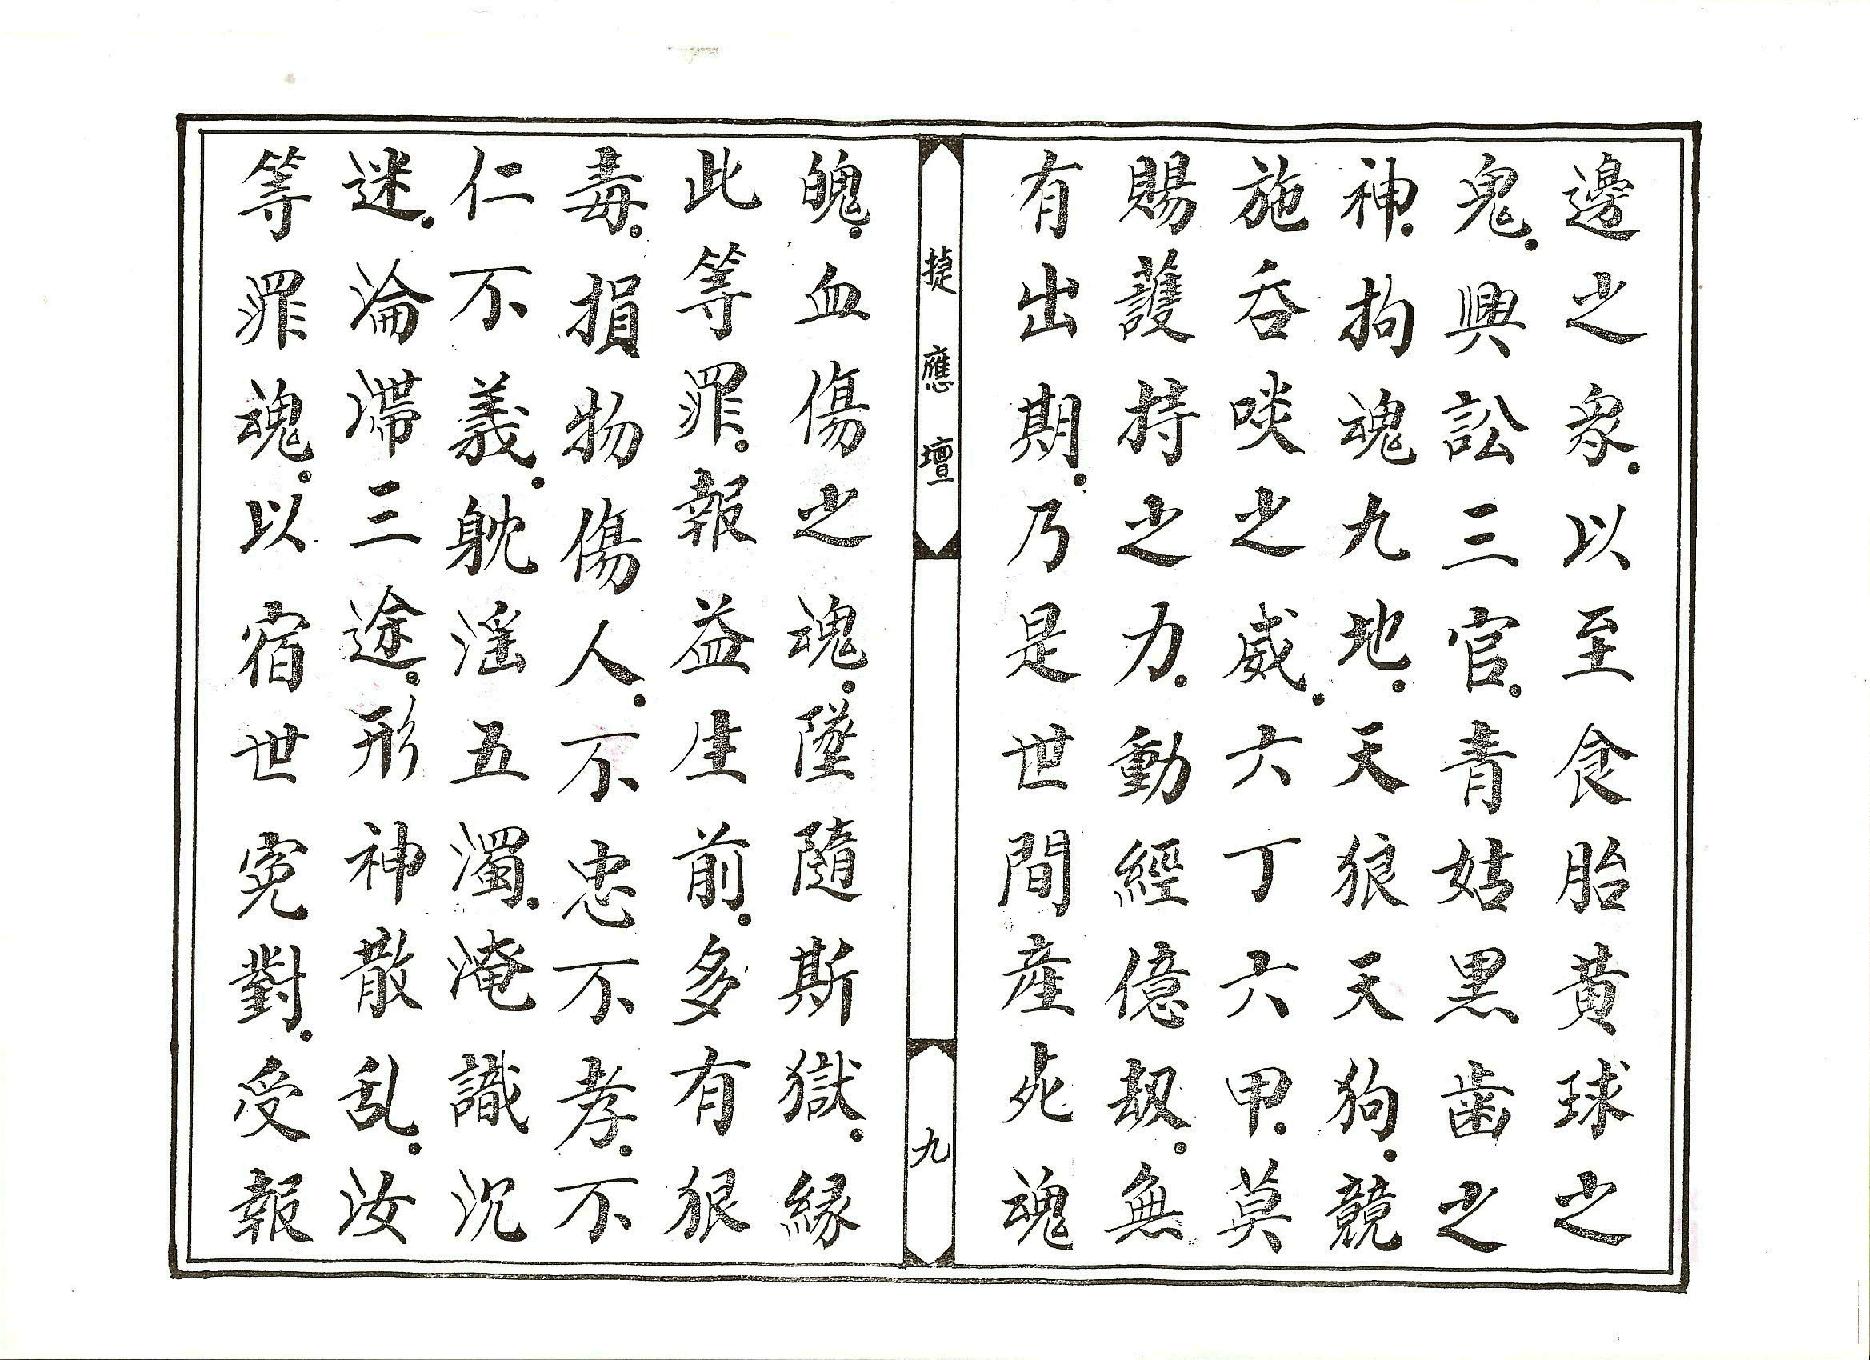 邊之衆。以至食胎黄球之
鬼。興訟三官。青姑黑歯之
神。拘魂九地。天狼天狗。競
施吞啖之威。六丁六甲。莫
賜護持之力。動經億刼。無
有出期。乃是世間産死魂
捷應壇
九
魄。血傷之魂。墜隨斯獄。縁
此等罪。報益生前。多有狠
毒。損物傷人。不忠不孝。不
仁不義。躭滛五濁。淹識沉
迷。淪滯三途。形神散乱。汝
等罪魂。以宿世寃對。受報